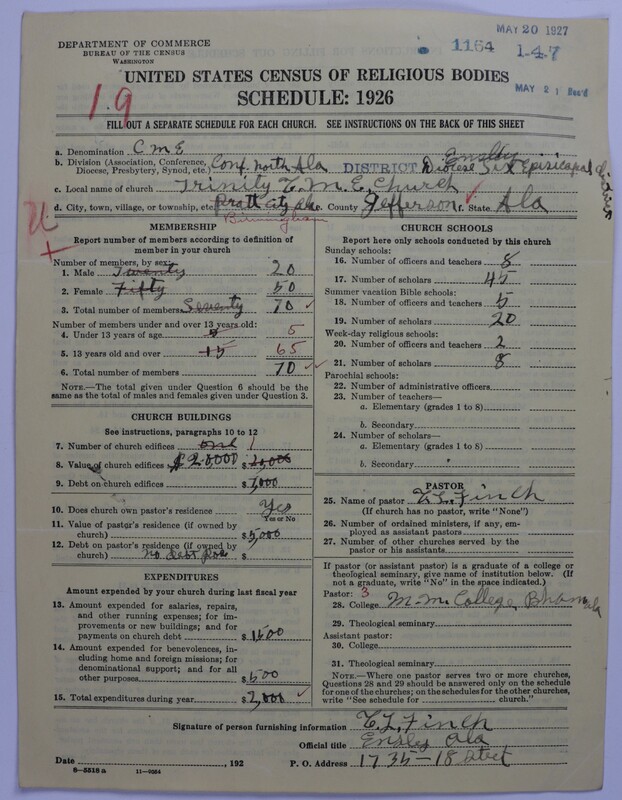 MAY 20 1927
DEPARTMENT OF COMMERCE
BUREAU OF THE CENSUS
WASHINGTON
1164 1-4-7
UNITED STATES CENSUS OF RELIGIOUS BODIES
MAY 21 Rec'd
SCHEDULE: 1926
19
FILL OUT A SEPARATE SCHEDULE FOR EACH CHURCH. SEE INSTRUCTIONS ON THE BACK OF THIS SHEET
a. Denomination C M E
b. Division (Association, Conference, Diocese, Presbytery, Synod, etc.) Conf. North Ala DISTRICT Ensley Diocese Six Episcopal
c. Local name of church Trinity C. M. E. Church
d. City, town, village, or township, etc. Pratt City Ala e. County Jefferson f. State Ala
Birmingham
MEMBERSHIP
Report number of members according to definition of member in your church
Number of members, by sex:
1. Male Twenty 20
2. Female Fifty 50
3. Total number of members Seventy 70
Number of members under and over 13 years old:
4. Under 13 years of age 5 5
5. 13 years old and over 15 65
6. Total number of members 70
NOTE.—The total given under Question 6 should be the same as the total of males and females given under Question 3.
CHURCH BUILDINGS
See instructions, paragraphs 10 to 12
7. Number of church edifices one 1
8. Value of church edifices $20000 $20,000
9. Debt on church edifices $7,000
10. Does church own pastor's residence Yes
Yes or No
11. Value of pastor's residence (if owned by church) $5,000
12. Debt on pastor's residence (if owned by church) no debt $
EXPENDITURES
Amount expended by your church during last fiscal year
13. Amount expended for salaries, repairs, and other running expenses; for improvements or new buildings; and for payments on church debt $1500
14. Amount expended for benevolences, including home and foreign missions; for denominational support; and for all other purposes $500
15. Total expenditures during year $2,000
CHURCH SCHOOLS
Report here only schools conducted by this church
Sunday schools:
16. Number of officers and teachers 8
17. Number of scholars 45
Summer vacation Bible schools:
18. Number of officers and teachers 5
19. Number of scholars 20
Week-day religious schools:
20. Number of officers and teachers 2
21. Number of scholars 8
Parochial schools:
22. Number of administrative officers
23. Number of teachers—
a. Elementary (grades 1 to 8)
b. Secondary
24. Number of scholars—
a. Elementary (grades 1 to 8)
b. Secondary
PASTOR
25. Name of pastor T. L. Finch
(If church has no pastor, write "None")
26. Number of ordained ministers, if any, employed as assistant pastors
27. Number of other churches served by the pastor or his assistants
If pastor (or assistant pastor) is a graduate of a college or theological seminary, give name of institution below. (If not a graduate, write "No" in the space indicated.)
Pastor: 3
28. College M. M. College, Bham Ala
29. Theological seminary
Assistant pastor:
30. College
31. Theological seminary
NOTE.—Where one pastor serves two or more churches, Questions 28 and 29 should be answered only on the schedule for one of the churches; on the schedules for the other churches, write "See schedule for church."
Signature of person furnishing information T. L. Finch
Official title Ensley Ala
Date , 192 P. O. Address 1735—18 Street
8—5518 a 11—9054